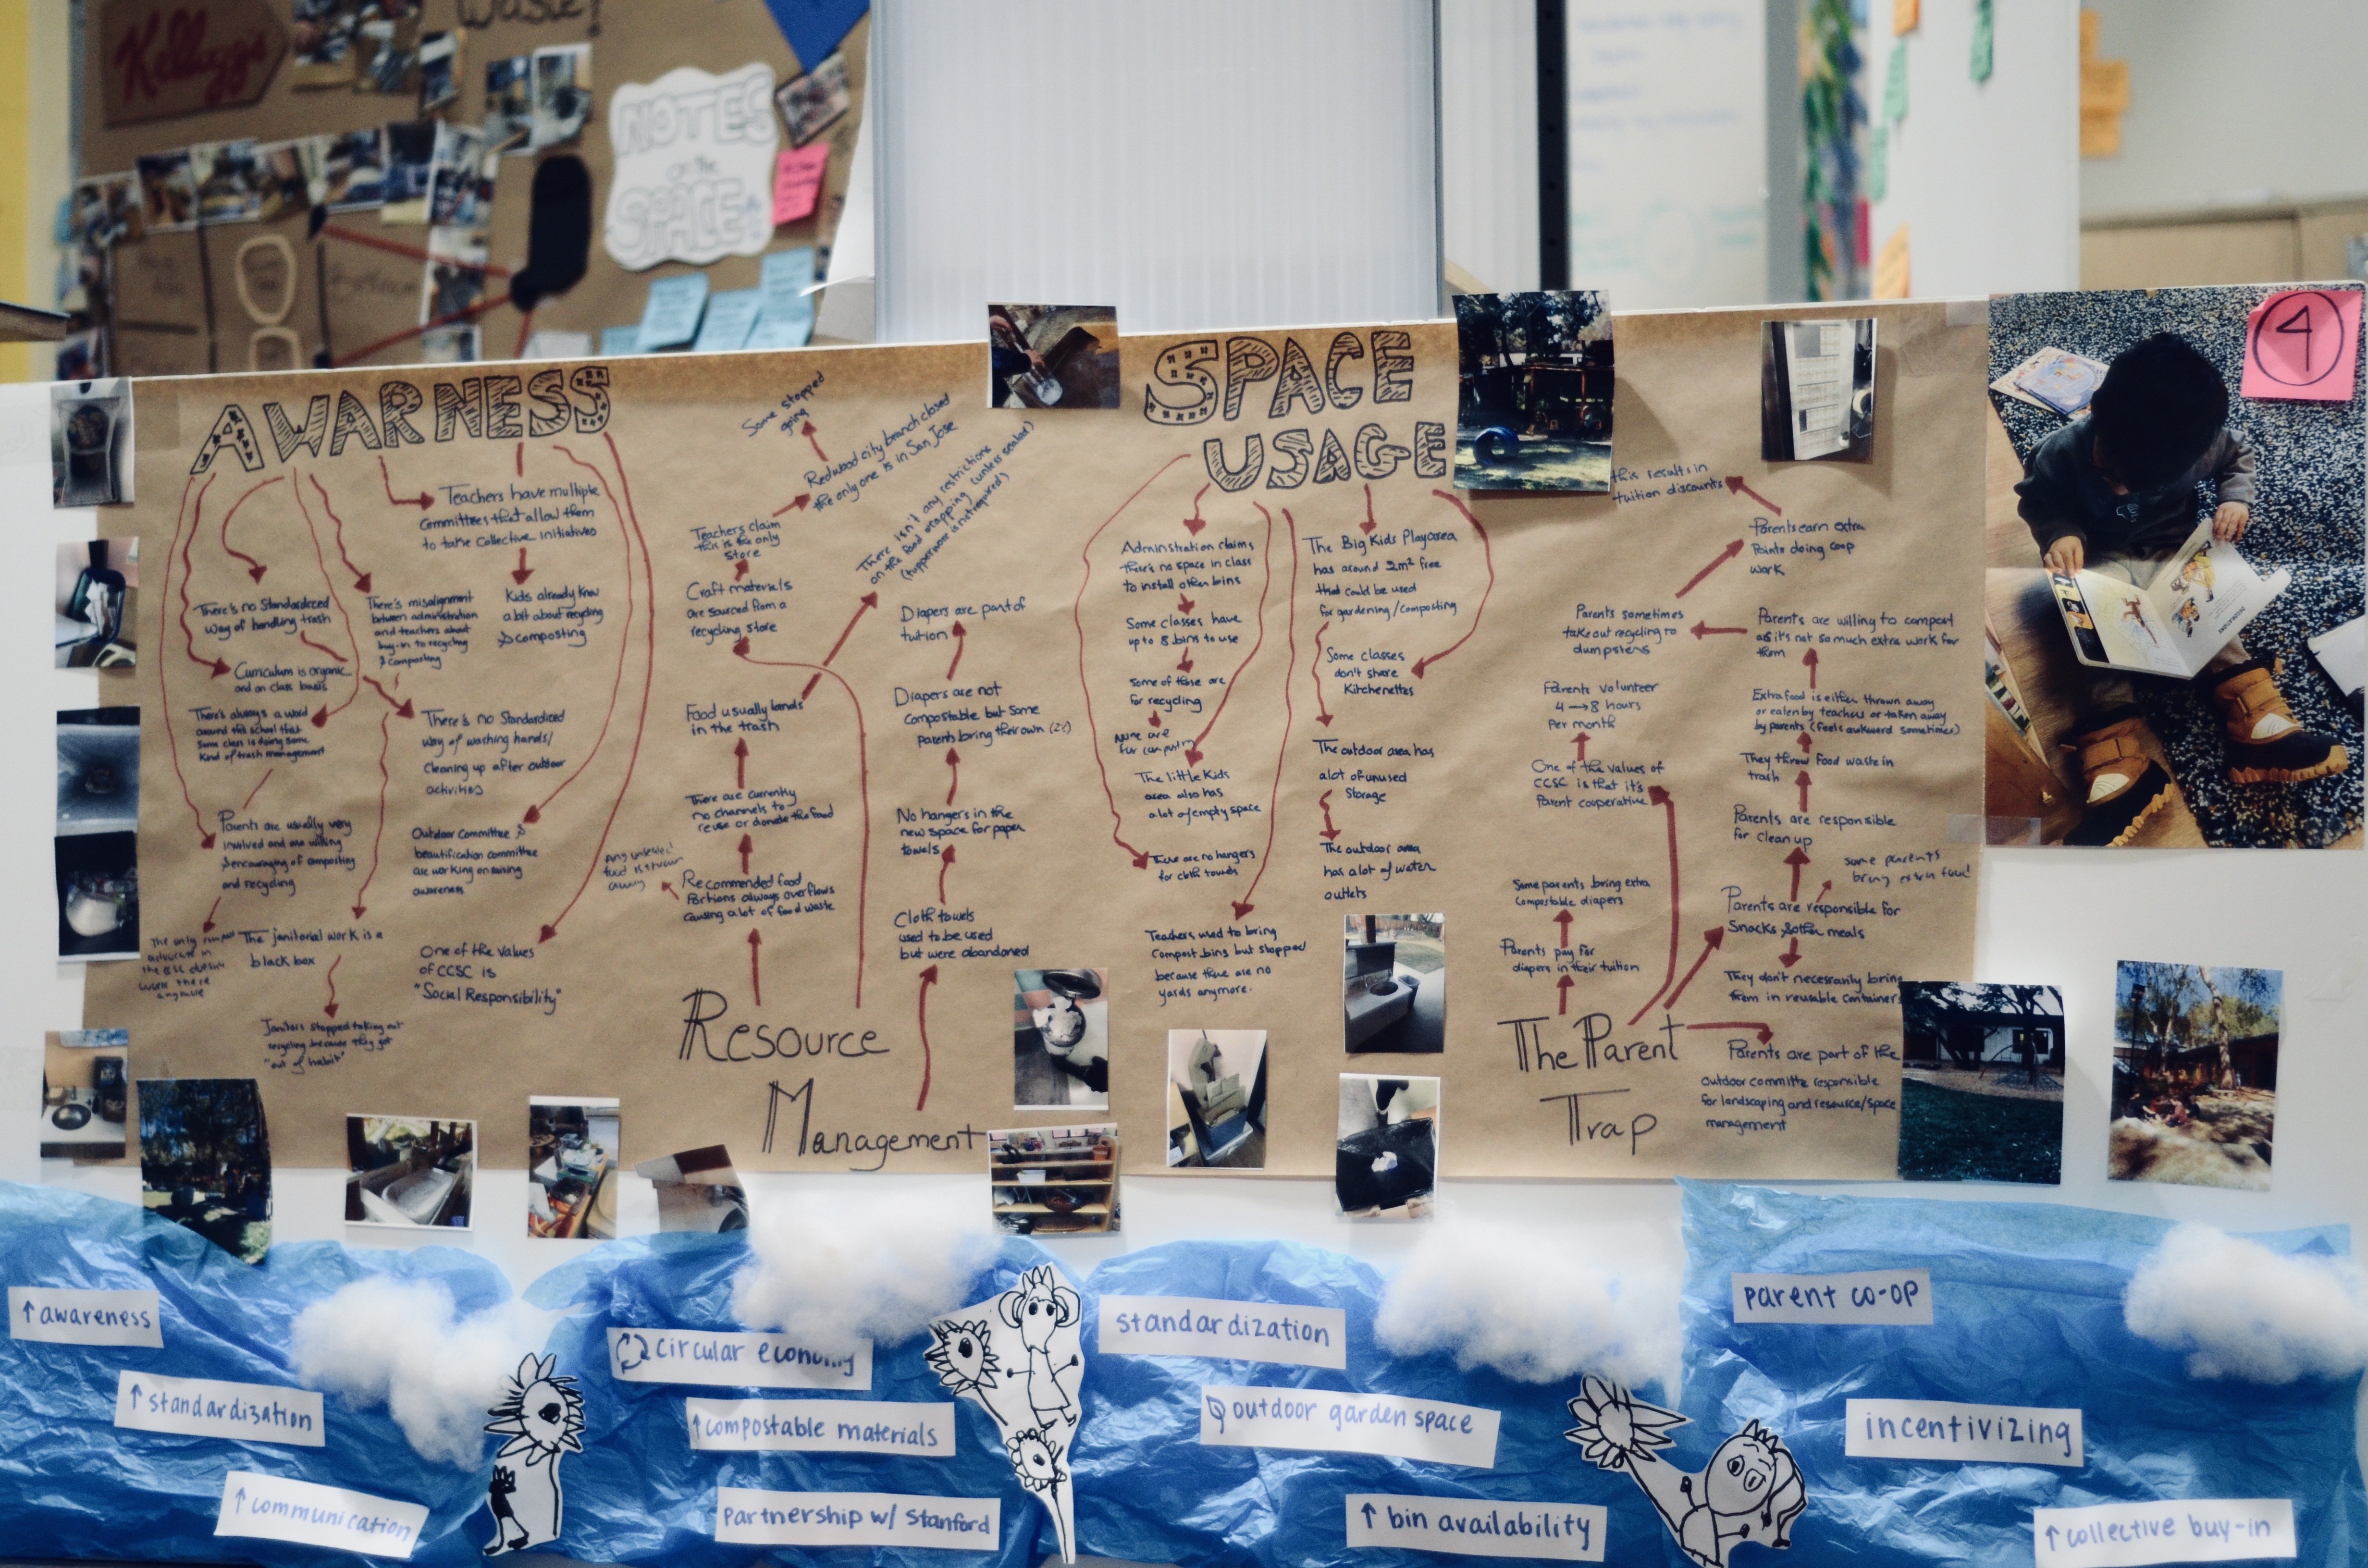 Kelloggs
Waste!
NOTES
on the
SPACE
4
AWARNESS
Teachers have multiple
committees that allow them
to take collective initiatives
Kids already know
a bit about recycling
& composting
There's no Standardized
way of handling trash
There's misalignment
between administration
and teachers about
buy-in to recycling
& composting
Curriculum is organic
and on class basis
There's always a word
around the school that
some class is doing some
kind of trash management
There's no Standardized
way of washing hands/
cleaning up after outdoor
activities
Parents are usually very
involved and are willing
& encouraging of composting
and recycling
Outdoor committee &
beautification committee
are working on raising
awareness
The only
in
the doesn't
work there
anymore
The janitorial work is a
black box
One of the values
of CCSC is
"Social Responsibility"
Janitors stopped taking out
recycling because they get
"out of habit"
Some stopped
going
Redwood city branch closed
the only one is in San Jose
Teachers claim
this is the only
store
Craft materials
are sourced from a
recycling store
There isn't any restrictions
on the food wrapping (unless sealed)
(tupperware is not required)
Food usually lands
in the trash
There are currently
no channels to
reuse or donate the food
Any unused
food is thrown
away
Recommended food
Portions always overflows
causing a lot of food waste
Diapers are part of
tuition
Diapers are not
compostable but some
parents bring their own
No hangers in the
new space for paper
towels
Cloth towels
used to be used
but were abandoned
Resource
Management
SPACE
USAGE
Administration claims
There's no space in class
to install other bins
Some classes have
up to 8 bins to use
Some of those are
for recycling
None are
for
The little kids
area also has
a lot of empty space
There are no hangers
for cloth towels
Teachers used to bring
compost bins but stopped
because there are no
yards anymore.
The Big Kids Playarea
has around 2m² free
that could be used
for gardening/composting
Some classes
don't share
kitchenettes
The outdoor area has
a lot of unused
Storage
The outdoor area
has a lot of water
outlets
this results in
tuition discounts
Parents earn extra
Points doing coop
work
Parents sometimes
take out recycling to
dumpsters
Parents are willing to compost
as it's not so much extra work for
them
Parents volunteer
4 → 8 hours
Per month
Extra food is either thrown away
or eaten by teachers or taken away
by parents (feels awkward sometimes)
One of the values of
CCSC is that it's
Parent cooperative
They throw food waste in
trash
Parents are responsible
for clean up
some parents
bring extra food!
Some parents bring extra
Compostable diapers
Parents are responsible for
Snacks & other meals
Parents pay for
diapers in their tuition
They don't necessarily bring
them in reusable containers
The Parent
Trap
Parents are part of the
outdoor committe responsible
for landscaping and resource/space
management
↑ awareness
↑ standardization
↑ communication
circular economy
↑ compostable materials
partnership w/ Stanford
standardization
outdoor garden space
↑ bin availability
parent co-op
incentivizing
↑ collective buy-in